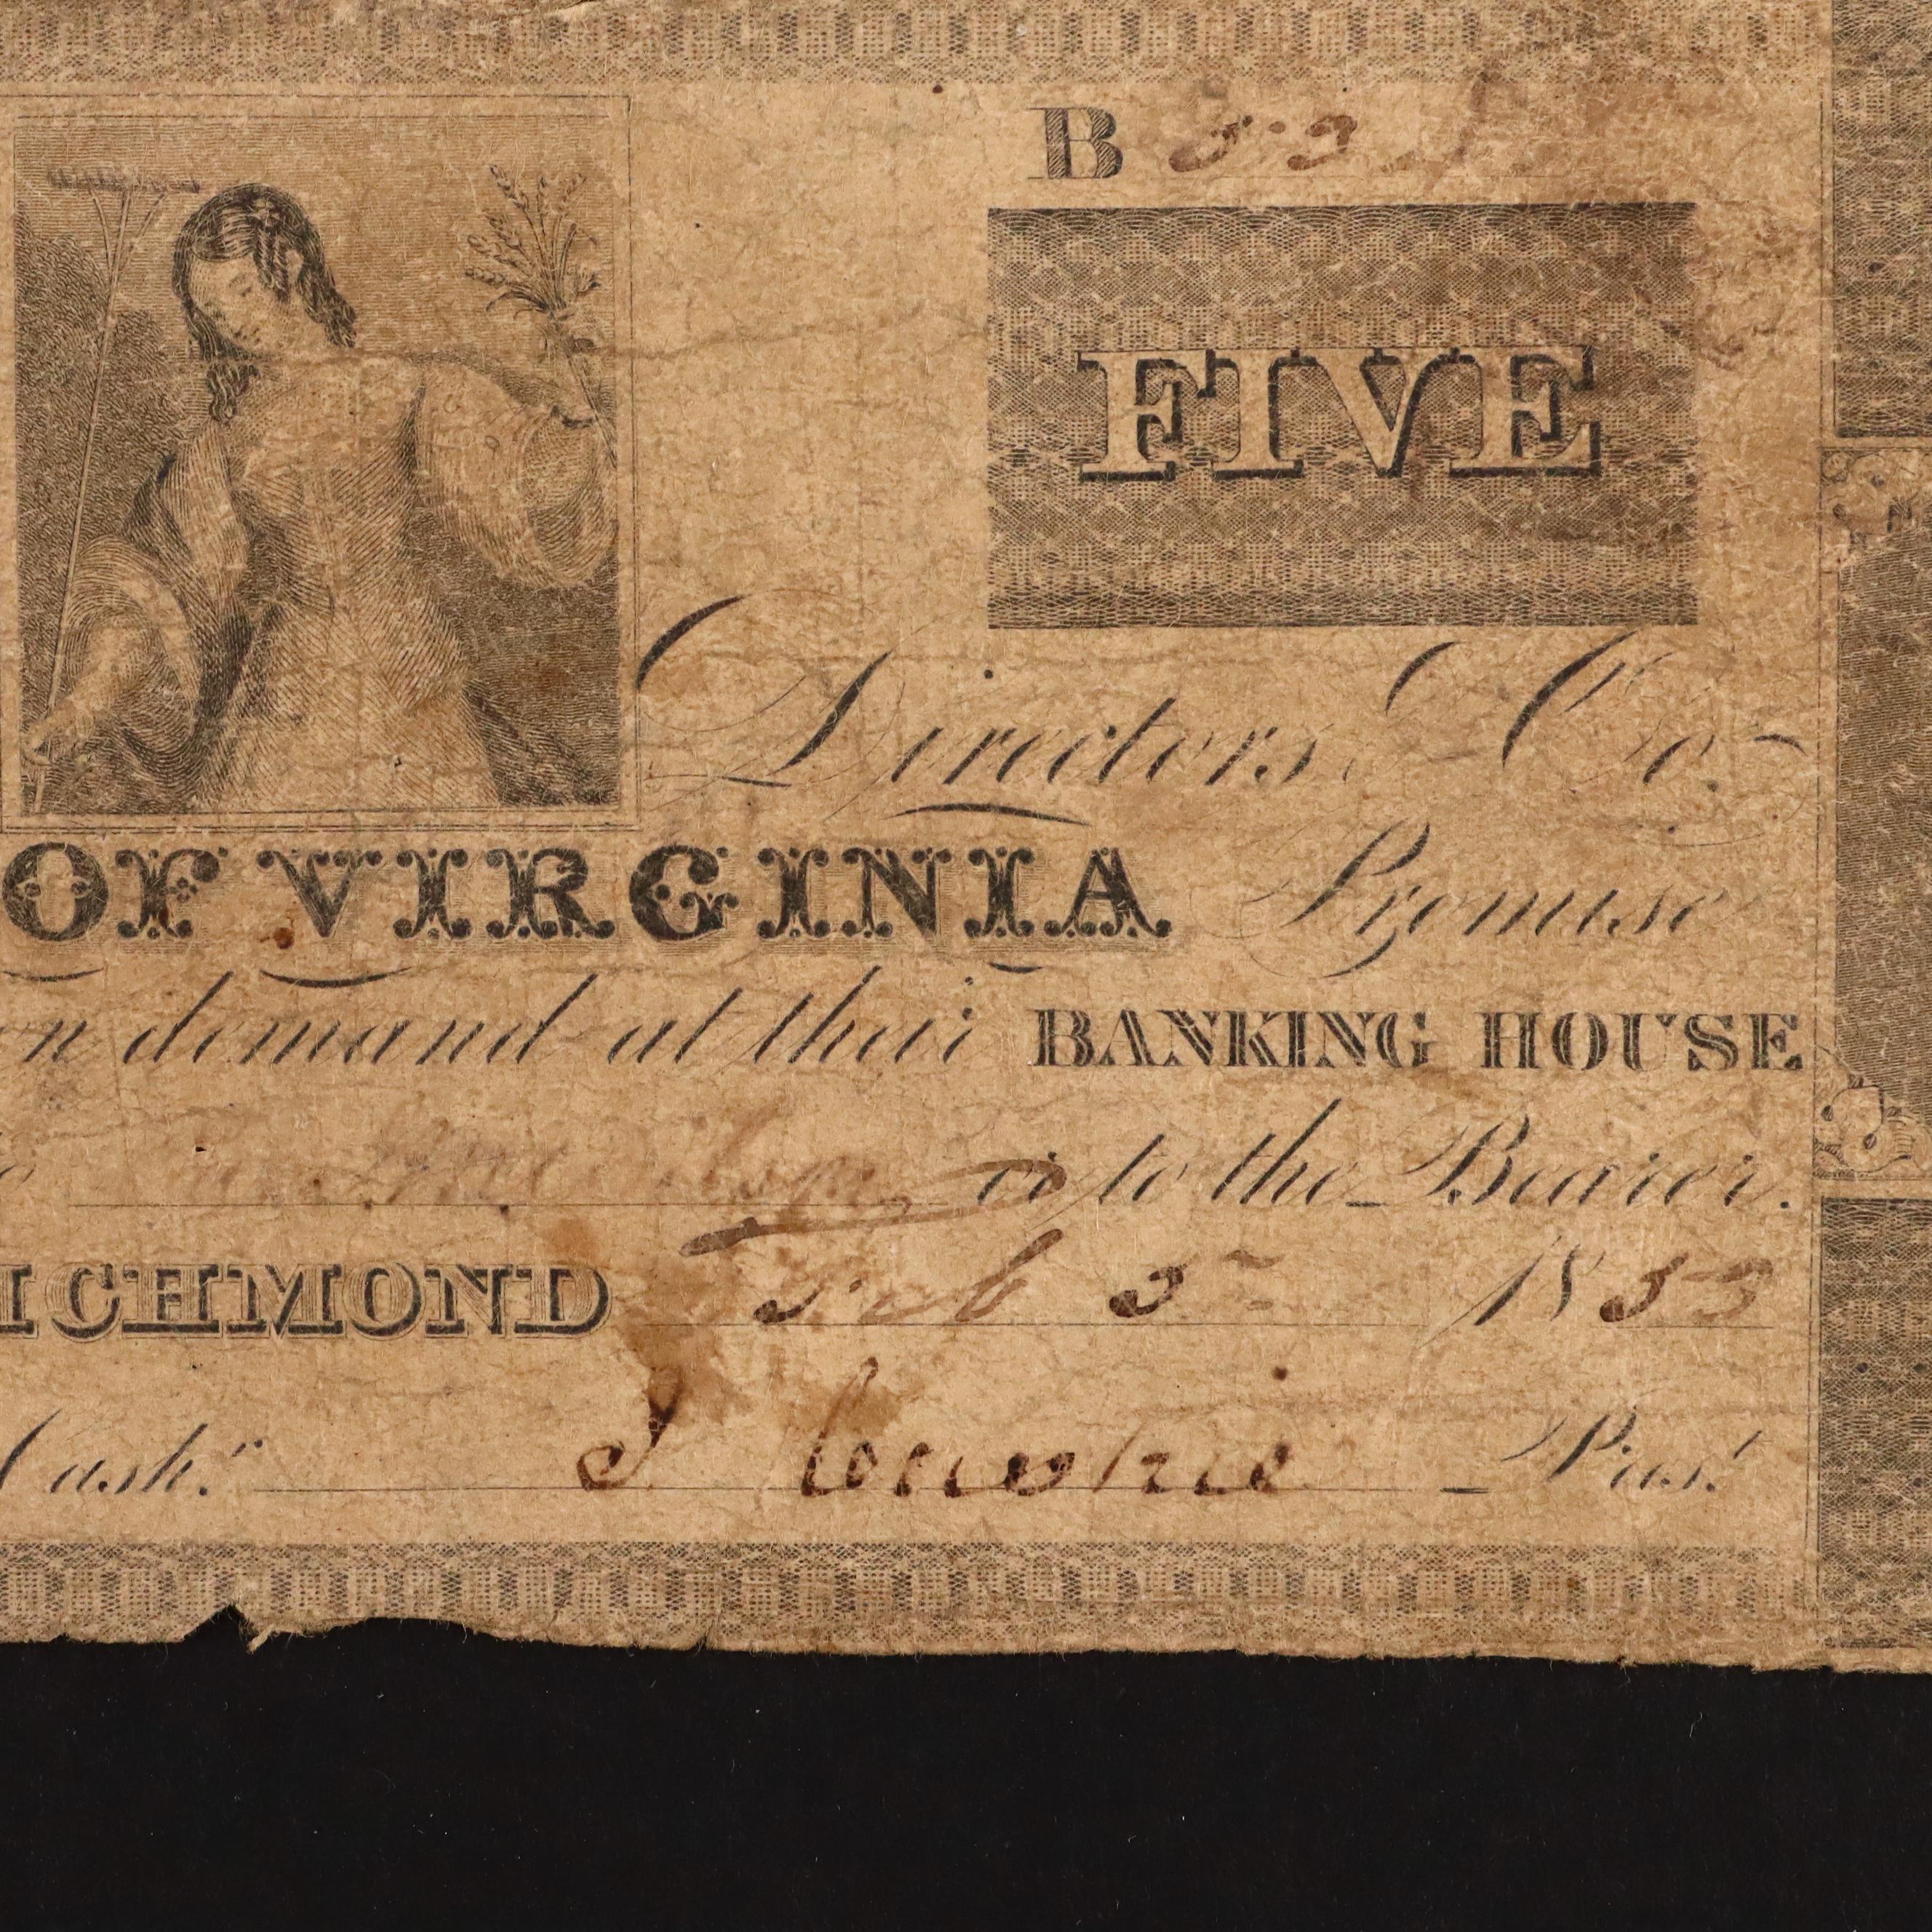 B
FIVE
Directors & Co.
OF VIRGINIA Promise
on demand at their BANKING HOUSE
to the Bearer.
ICHMOND Feb 5 1853
Cash.r Pres.t